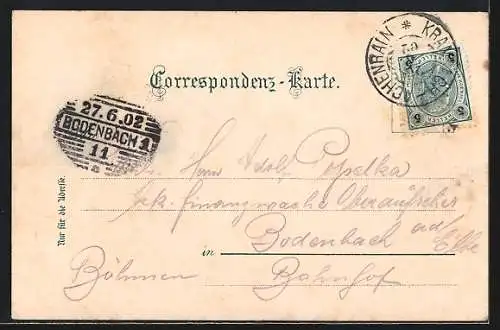 ACHENRAIN * KRA
Correspondenz-Karte.
27.6.02
BODENBACH 1
11
a
Nur für die Adresse.
Herrn Adolf Popelka
k.k. Finanzwache Oberaufseher
in Bodenbach a/d Elbe
Böhmen Bahnhof